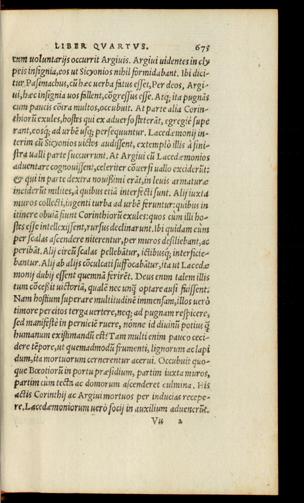 LIBER QVARTVS. 675
tum uoluntarijs occurrit Argiuis. Argiui uidentes in cly
peis insignia, eos ut Sicyonios nihil formidabant. Ibi dici
tur Pasimachus, cũ hæc uerba fatus esset, Per deos, Argi-
ui, hæc insignia uos fallent, cõgressus esse. Atq; ita pugnãs
cum paucis cõtra multos, occubuit. At parte alia Corin-
thiorũ exules, hostes qui ex aduerso steterãt, egregiè supe
rant, eosq; ad urbẽ usq; persequuntur. Lacedæmonij in-
terim cũ Sicyonios uictos audissent, extemplò illis à sini-
stra ualli parte succurrunt. At Argiui cũ Lacedæmonios
aduentare cognouissent, celeriter cõuersi uallo exciderũt:
& qui in parte dextra nouissimi erãt, in leuis armaturæ
inciderũt milites, à quibus etiã interfecti sunt. Alij iuxta
muros collecti, ingenti turba ad urbẽ feruntur: quibus in
itinere obuiã fiunt Corinthiorũ exules: quos cum illi ho-
stes esse intellexissent, rursus declinarunt. Ibi quidam cum
per scalas ascendere niterentur, per muros desiliebant, ac
peribãt. Alij circũ scalas pellebãtur, ictibusq; interficie-
bantur. Alij ab alijs cõculcati suffocabãtur, ita ut Lacedæ
monij dubij essent quemnã ferirẽt. Deus enim talem illis
tum cõcessit uictoriã, qualẽ nec unq̃ optare ausi fuissent.
Nam hostium superare multitudinẽ immensam, illos uerò
timore percitos terga uertere, neq; ad pugnam respicere,
sed manifestè in perniciẽ ruere, nonne id diuinũ potius q̃
humanum existimandũ est? Tam multi enim pauco ceci-
dere tẽpore, ut quemadmodũ frumenti, lignorum ac lapi
dum, ita mortuorum cernerentur acerui. Occubuit quo-
que Bœotiorũ in portu præsidium, partim iuxta muros,
partim cum tecta ac domorum ascenderet culmina. His
actis Corinthij ac Argiui mortuos per inducias recepe-
re, Lacedæmoniorum uerò socij in auxilium aduenerũt.
Vu 2